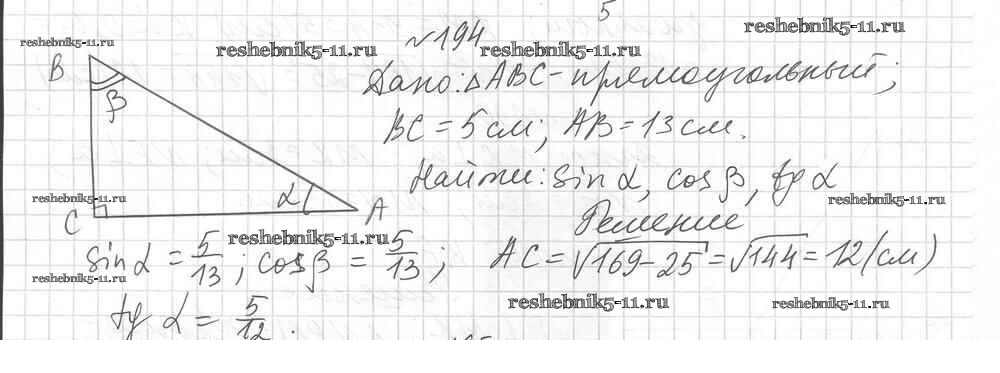 №194
Дано: △ABC - прямоугольный;
BC = 5 см; AB = 13 см.
Найти: sin α, cos β, tg α
Решение
sin α = 5/13; cos β = 5/13; AC = √169-25 = √144 = 12 (см)
tg α = 5/12.
B
β
α
C
A
5
reshebnik5-11.ru
reshebnik5-11.ru
reshebnik5-11.ru
reshebnik5-11.ru
reshebnik5-11.ru
reshebnik5-11.ru
reshebnik5-11.ru
reshebnik5-11.ru
reshebnik5-11.ru
reshebnik5-11.ru